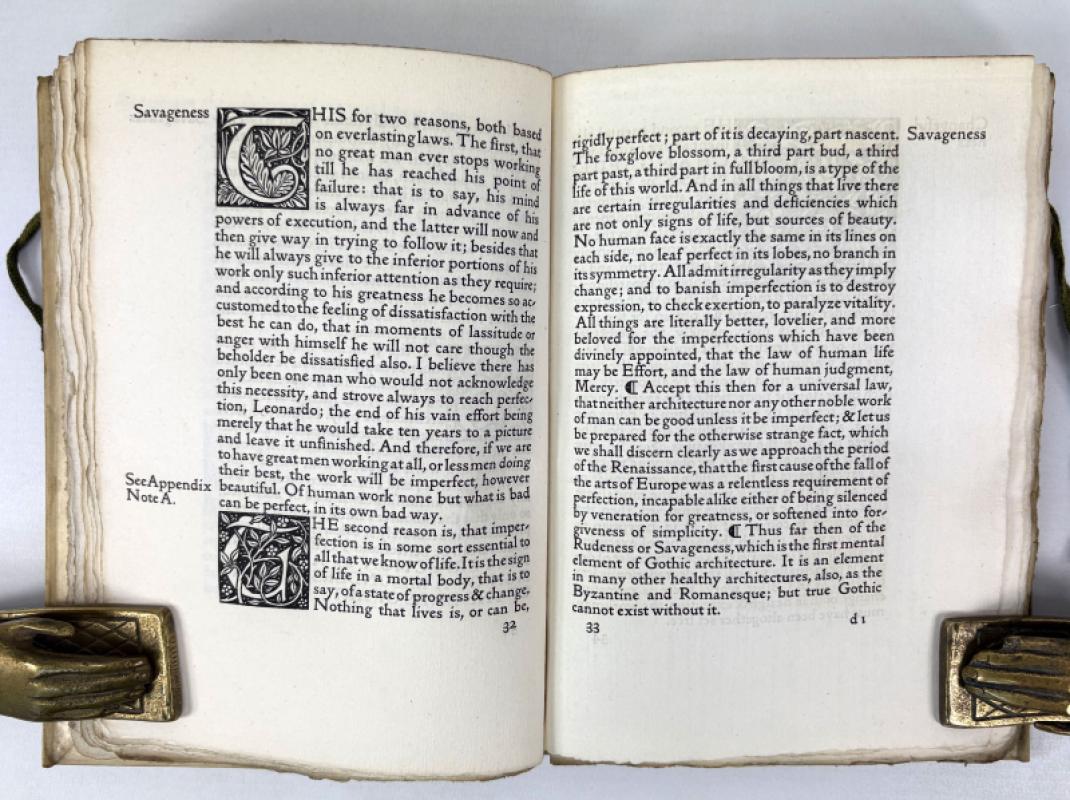 Savageness
THIS for two reasons, both based
on everlasting laws. The first, that
no great man ever stops working
till he has reached his point of
failure: that is to say, his mind
is always far in advance of his
powers of execution, and the latter will now and
then give way in trying to follow it; besides that
he will always give to the inferior portions of his
work only such inferior attention as they require;
and according to his greatness he becomes so ac-
customed to the feeling of dissatisfaction with the
best he can do, that in moments of lassitude or
anger with himself he will not care though the
beholder be dissatisfied also. I believe there has
only been one man who would not acknowledge
this necessity, and strove always to reach perfec-
tion, Leonardo; the end of his vain effort being
merely that he would take ten years to a picture
and leave it unfinished. And therefore, if we are
to have great men working at all, or less men doing
their best, the work will be imperfect, however
See Appendix
Note A.
beautiful. Of human work none but what is bad
can be perfect, in its own bad way.
THE second reason is, that imper-
fection is in some sort essential to
all that we know of life. It is the sign
of life in a mortal body, that is to
say, of a state of progress & change.
Nothing that lives is, or can be,
32
rigidly perfect; part of it is decaying, part nascent.
Savageness
The foxglove blossom, a third part bud, a third
part past, a third part in full bloom, is a type of the
life of this world. And in all things that live there
are certain irregularities and deficiencies which
are not only signs of life, but sources of beauty.
No human face is exactly the same in its lines on
each side, no leaf perfect in its lobes, no branch in
its symmetry. All admit irregularity as they imply
change; and to banish imperfection is to destroy
expression, to check exertion, to paralyze vitality.
All things are literally better, lovelier, and more
beloved for the imperfections which have been
divinely appointed, that the law of human life
may be Effort, and the law of human judgment,
Mercy. ¶ Accept this then for a universal law,
that neither architecture nor any other noble work
of man can be good unless it be imperfect; & let us
be prepared for the otherwise strange fact, which
we shall discern clearly as we approach the period
of the Renaissance, that the first cause of the fall of
the arts of Europe was a relentless requirement of
perfection, incapable alike either of being silenced
by veneration for greatness, or softened into for-
giveness of simplicity. ¶ Thus far then of the
Rudeness or Savageness, which is the first mental
element of Gothic architecture. It is an element
in many other healthy architectures, also, as the
Byzantine and Romanesque; but true Gothic
cannot exist without it.
33
d1